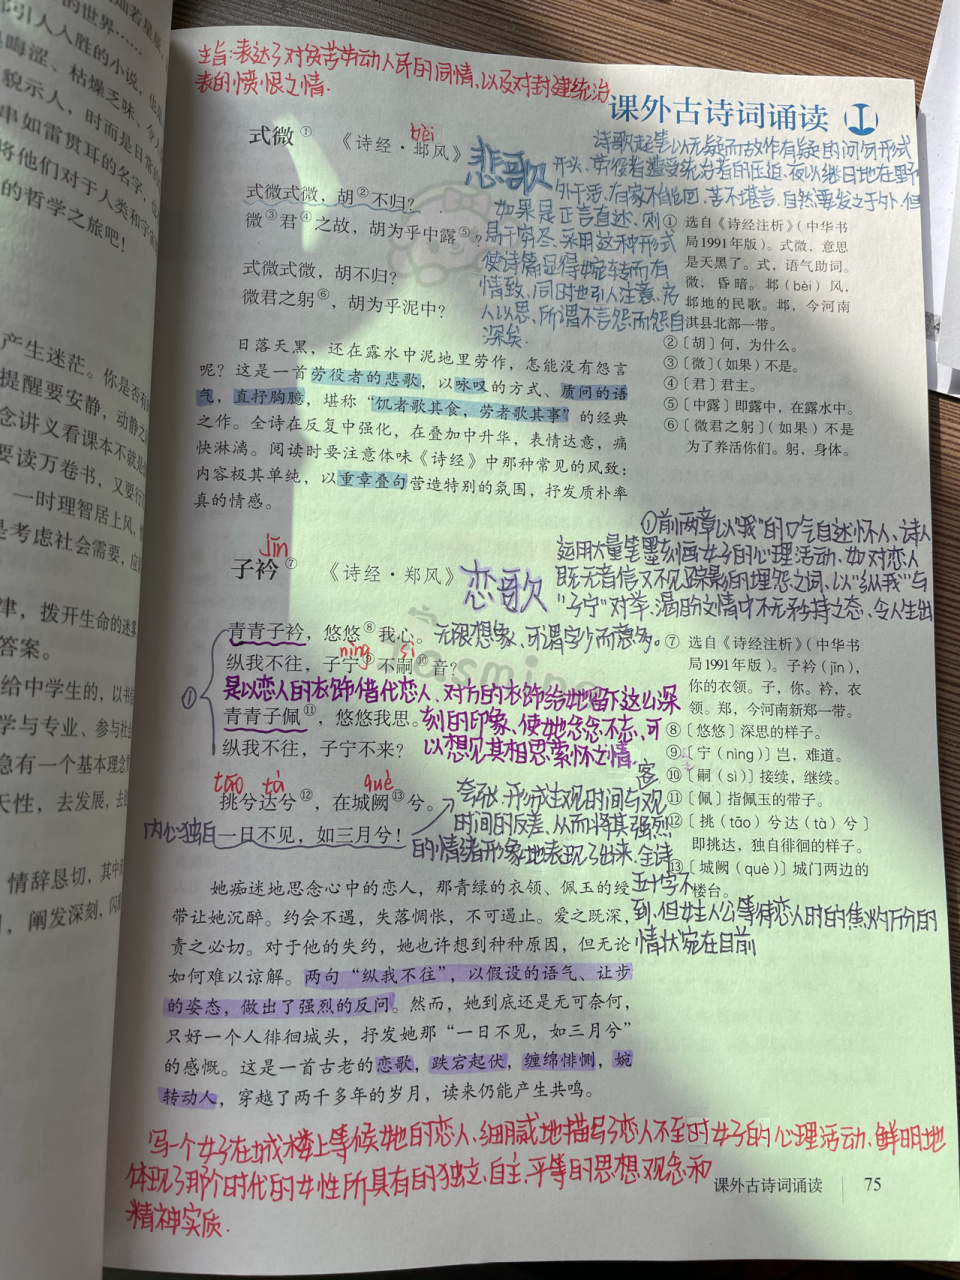 引人入胜的小说，
晦涩、枯燥乏味，令人
貌示人，时而是日常的
串如雷贯耳的名字，也
将他们对于人类和宇宙
的哲学之旅吧！
产生迷茫。你是否有
提醒要安静，动静之
念讲义看课本不就是
要读万卷书，又要行万
一时理智居上风，
是考虑社会需要，应
津，拨开生命的迷
答案。
给中学生的，以书
学与专业、参与社
急有一个基本理念
天性，去发展，去
情辞恳切，其中
阐发深刻，
主旨:表达了对贫苦劳动人民的同情、以及对封建统治
表的愤恨之情.
课外古诗词诵读
式微①
《诗经·邶风》
bèi
悲歌
诗歌起笔以无疑而故作有疑的问句形式
开头，劳役者遭受统治者的压迫，夜以继日地在野
外干活，有家不能回，苦不堪言，自然要发之于外，但
如果是正言直述，则
易于穷尽，采用这种形式
使诗篇显得婉转而有
情致，同时也引人注意，启
人以思，所谓不言怨而怨自
深矣.
式微式微，胡②不归？
微③君④之故，胡为乎中露⑤？
式微式微，胡不归？
微君之躬⑥，胡为乎泥中？
日落天黑，还在露水中泥地里劳作，怎能没有怨言
呢？这是一首劳役者的悲歌，以咏叹的方式、质问的语
气，直抒胸臆，堪称“饥者歌其食，劳者歌其事”的经典
之作。全诗在反复中强化，在叠加中升华，表情达意，痛
快淋漓。阅读时要注意体味《诗经》中那种常见的风致：
内容极其单纯，以重章叠句营造特别的氛围，抒发质朴率
真的情感。
① 选自《诗经注析》（中华书
局1991年版）。式微，意思
是天黑了。式，语气助词。
微，昏暗。邶（bèi）风，
邶地的民歌。邶，今河南
淇县北部一带。
②〔胡〕何，为什么。
③〔微〕（如果）不是。
④〔君〕君主。
⑤〔中露〕即露中，在露水中。
⑥〔微君之躬〕（如果）不是
为了养活你们。躬，身体。
jīn
子衿⑦
《诗经·郑风》
恋歌
①前两章以“我”的口气自述怀人，诗人
运用大量笔墨刻画女子的心理活动，如对恋人
既无音信又不见踪影的埋怨之词，以“纵我”与
“子宁”对举，渴盼之情中不无矜持之态，令人生出
无限想象，可谓字少而意多。
青青子衿，悠悠⑧我心。
níng sì
纵我不往，子宁⑨不嗣⑩音？
是以恋人的衣饰借代恋人，对方的衣饰给她留下这么深
刻的印象，使她念念不忘，可
以想见其相思萦怀之情.
①
青青子佩⑪，悠悠我思。
纵我不往，子宁不来？
tāo tà què
挑兮达兮⑫，在城阙⑬兮。
内心独白
一日不见，如三月兮！
夸张，形成主观时间与客观
时间的反差，从而将其强烈
的情绪形象地表现了出来.全诗
五十字不
到，但女主人公等待恋人时的焦灼万分的
情状宛在目前
⑦ 选自《诗经注析》（中华书
局1991年版）。子衿（jīn），
你的衣领。子，你。衿，衣
领。郑，今河南新郑一带。
⑧〔悠悠〕深思的样子。
⑨〔宁（nìng）〕岂，难道。
⑩〔嗣（sì）〕接续，继续。
⑪〔佩〕指佩玉的带子。
⑫〔挑（tāo）兮达（tà）兮〕
即挑达，独自徘徊的样子。
⑬〔城阙（què）〕城门两边的
楼台。
她痴迷地思念心中的恋人，那青绿的衣领、佩玉的绶
带让她沉醉。约会不遇，失落惆怅，不可遏止。爱之既深，
责之必切。对于他的失约，她也许想到种种原因，但无论
如何难以谅解。两句“纵我不往”，以假设的语气、让步
的姿态，做出了强烈的反问。然而，她到底还是无可奈何，
只好一个人徘徊城头，抒发她那“一日不见，如三月兮”
的感慨。这是一首古老的恋歌，跌宕起伏，缠绵悱恻，婉
转动人，穿越了两千多年的岁月，读来仍能产生共鸣。
写一个女子在城楼上等候她的恋人.细腻地描写了恋人不至时女子的心理活动，鲜明地
体现了那个时代的女性所具有的独立、自主、平等的思想观念和
精神实质.
课外古诗词诵读 75